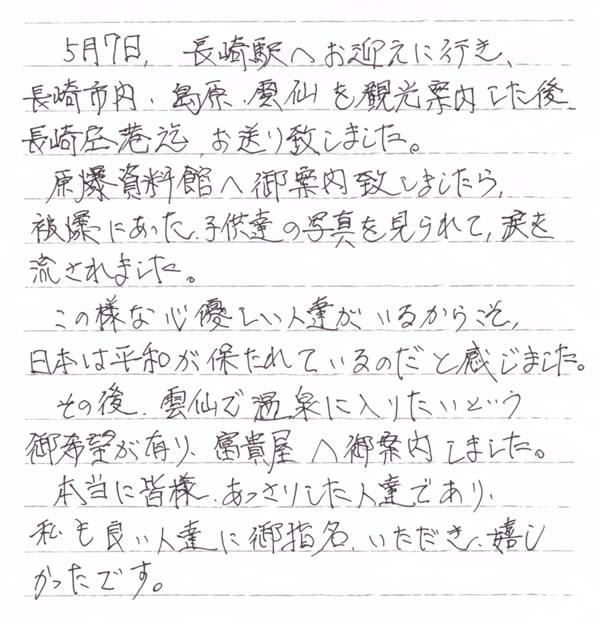 5月7日、長崎駅へお迎えに行き、
長崎市内、島原、雲仙を観光案内した後
長崎空港迄、お送り致しました。
原爆資料館へ御案内致しましたら、
被爆にあった、子供達の写真を見られて、涙を
流されました。
この様な心優しい人達がいるからこそ、
日本は平和が保たれているのだと感じました。
その後、雲仙で温泉に入りたいという
御希望が有り、富貴屋へ御案内しました。
本当に皆様、あっさりした人達であり、
私も良い人達に御指名、いただき、嬉し
かったです。